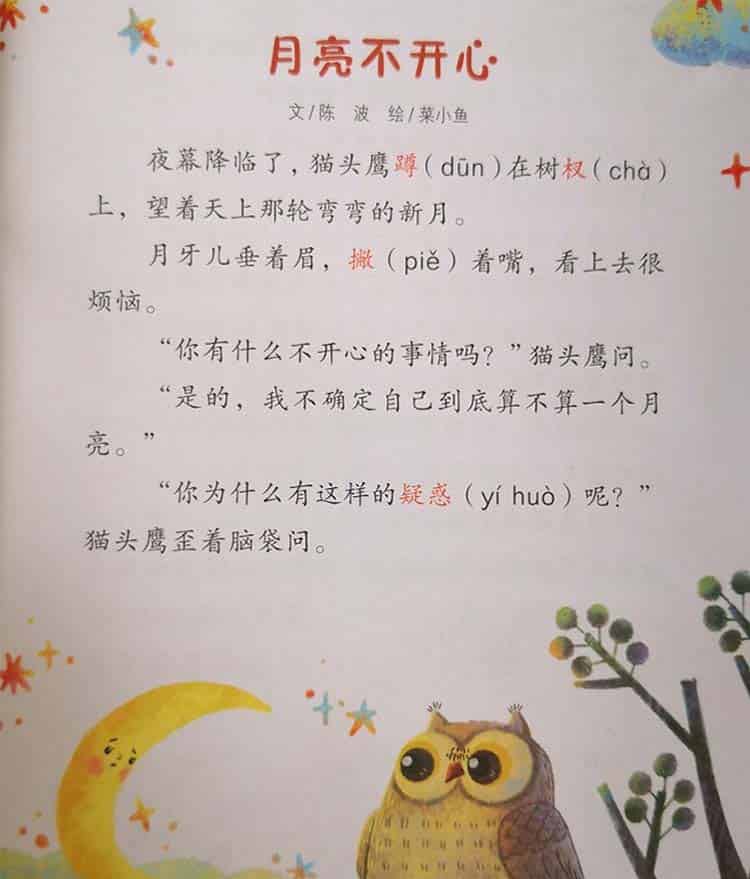 月亮不开心
文/陈 波 绘/菜小鱼
夜幕降临了，猫头鹰蹲（dūn）在树杈（chà）
上，望着天上那轮弯弯的新月。
月牙儿垂着眉，撇（piě）着嘴，看上去很
烦恼。
“你有什么不开心的事情吗？”猫头鹰问。
“是的，我不确定自己到底算不算一个月
亮。”
“你为什么有这样的疑惑（yí huò）呢？”
猫头鹰歪着脑袋问。